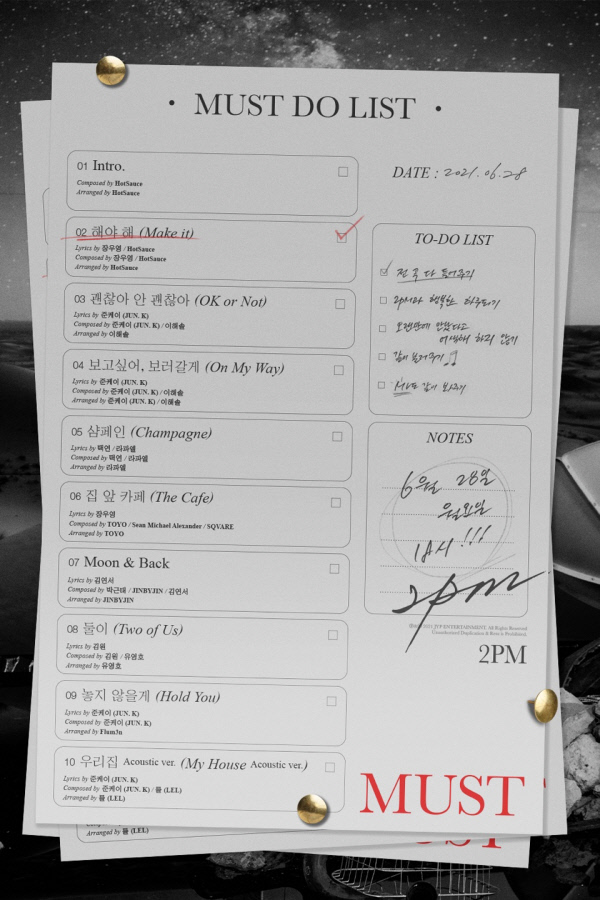 • MUST DO LIST •
01 Intro.
Composed by HotSauce
Arranged by HotSauce
02 해야 해 (Make it)
Lyrics by 장우영 / HotSauce
Composed by 장우영 / HotSauce
Arranged by HotSauce
03 괜찮아 안 괜찮아 (OK or Not)
Lyrics by 준케이 (JUN. K)
Composed by 준케이 (JUN. K) / 이해솔
Arranged by 이해솔
04 보고싶어, 보러갈게 (On My Way)
Lyrics by 준케이 (JUN. K)
Composed by 준케이 (JUN. K) / 이해솔
Arranged by 준케이 (JUN. K) / 이해솔
05 샴페인 (Champagne)
Lyrics by 택연 / 라파엘
Composed by 택연 / 라파엘
Arranged by 라파엘
06 집 앞 카페 (The Cafe)
Lyrics by 장우영
Composed by TOYO / Sean Michael Alexander / SQVARE
Arranged by TOYO
07 Moon & Back
Lyrics by 김연서
Composed by 박근태 / JINBYJIN / 김연서
Arranged by JINBYJIN
08 둘이 (Two of Us)
Lyrics by 김원
Composed by 김원 / 유영호
Arranged by 유영호
09 놓지 않을게 (Hold You)
Lyrics by 준케이 (JUN. K)
Composed by 준케이 (JUN. K)
Arranged by Flam3n
10 우리집 Acoustic ver. (My House Acoustic ver.)
Lyrics by 준케이 (JUN. K)
Composed by 준케이 (JUN. K) / 뜔 (LEL)
Arranged by 뜔 (LEL)
Arranged by 뜔 (LEL)
DATE : 2021.06.28
TO-DO LIST
전 곡 다 들어주기
2PM과 행복한 하루되기
오랜만에 만났다고
어색해 하지 않기
같이 놀러가기
같이
NOTES
6월 28일
월요일
1AM !!!
2pm
JYP ENTERTAINMENT. All Rights Reserved.
Unauthorized Duplication & Rent is Prohibited.
2PM
MUST